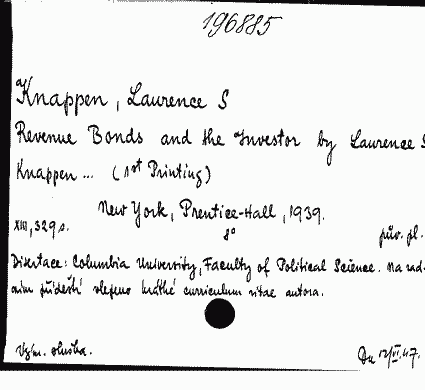 196885
Knappen, Laurence S
Revenue Bonds and the Investor by Laurence S
Knappen ... (1st Printing)
New York, Prentice-Hall, 1939.
XIII, 329 s. 8° pův. pl.
Disertace: Columbia University, Faculty of Political Science. Na zad-
ním přídeští vlepeno krátké curriculum vitae autora.
Vým. služba. Du 12/VI.47.